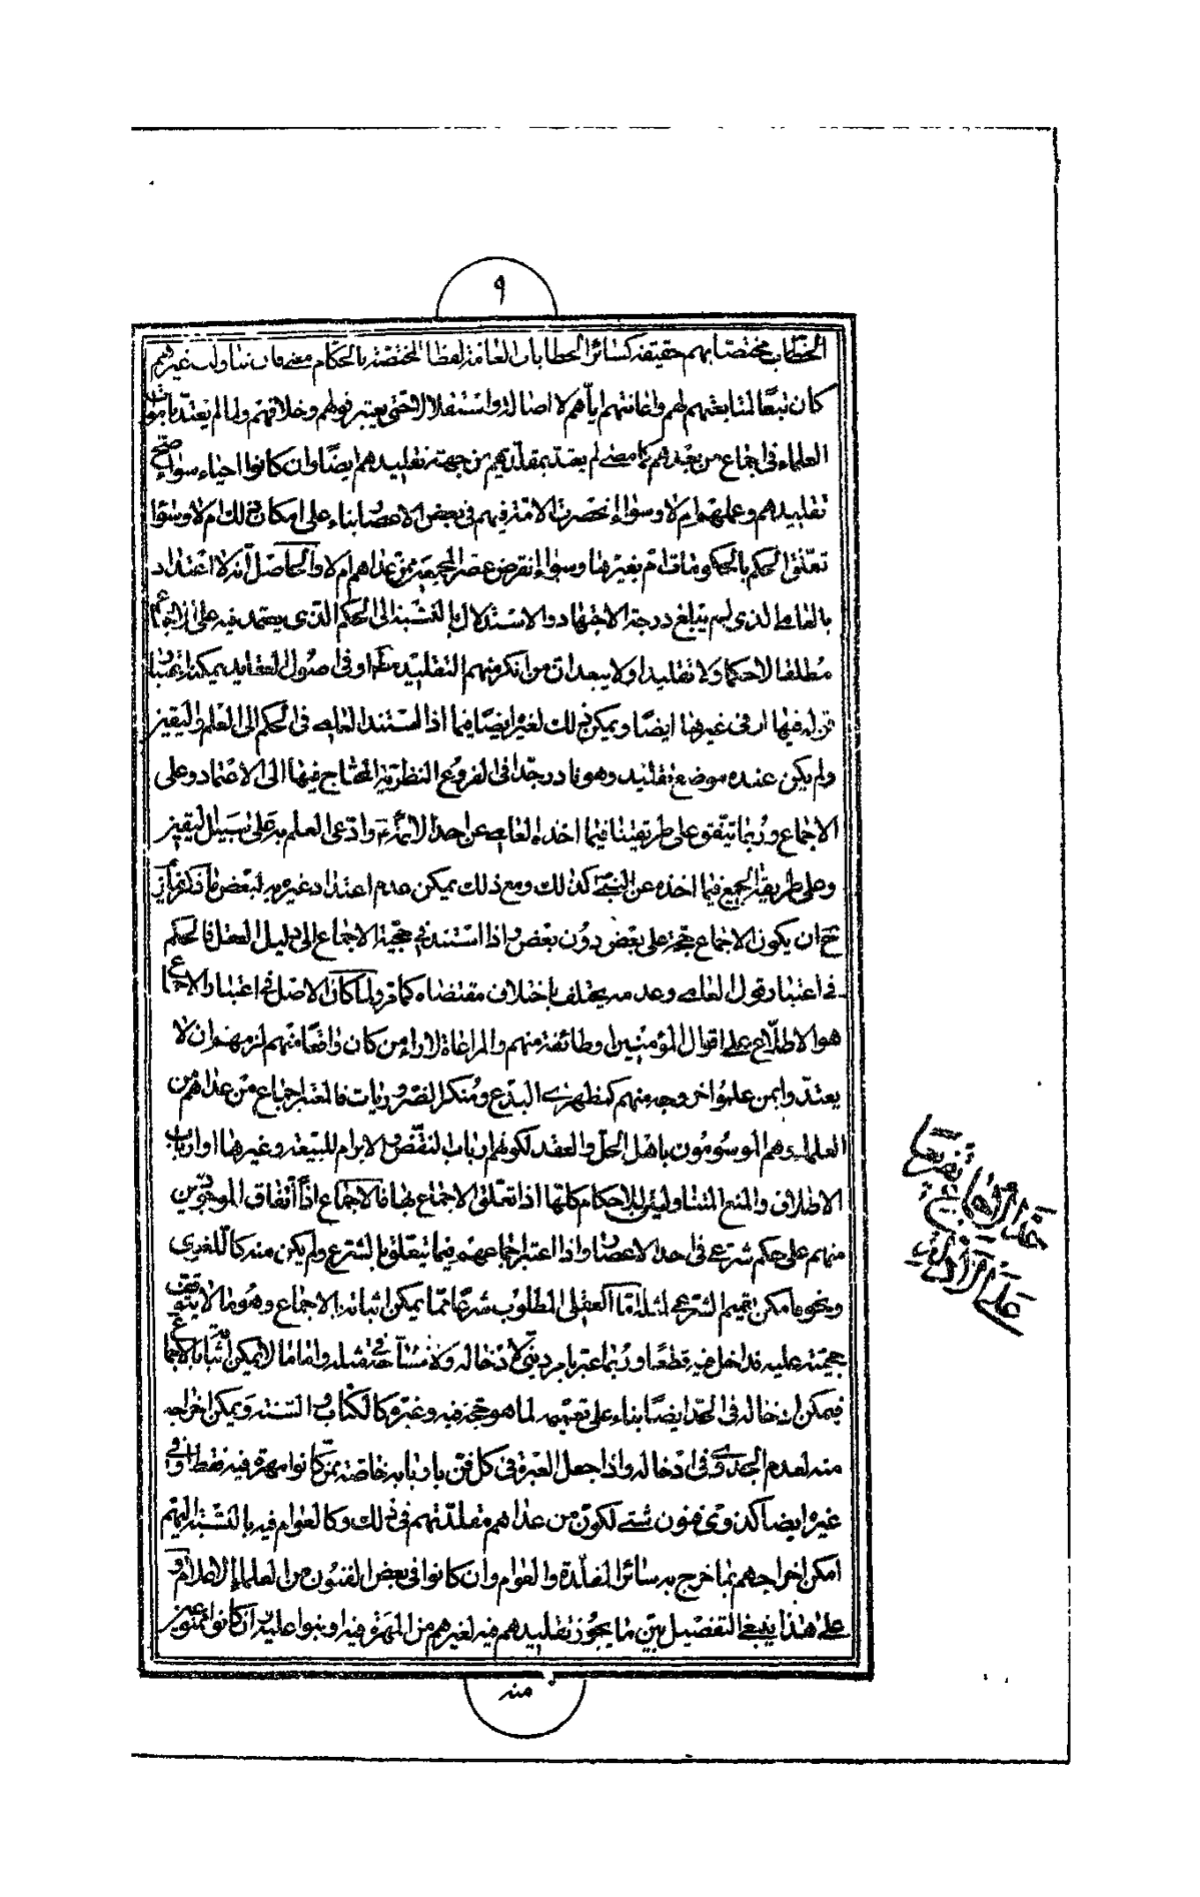 ٩
الخطاب مختصا بهم حقيقة كسائر الخطابات العامة لفظا المختصة بالحكام معنى فان تناولت غيرهم
كان تبعًا لمتابعتهم لهم واعانتهم اياهم لا اصالة واستقلالا حتى يعتبر قولهم وخلافهم ولما لم يعتد باموات
العلماء في اجماع من بعدهم كما مضى لم يعتد بمقلديهم من جهة تقليدهم ايضًا وان كانوا احياء سواء صح
تقليدهم وعملهم ام لا وسواء انحصرت الامة فيهم في بعض الاعصار بناء على امكان ذلك ام لا وسواء
تعلق الحكم بالحكومات ام بغيرها وسواء انقرض عصر الجميع ممن عداهم ام لا والحاصل انه لا اعتداد
بالعامي الذي لم يبلغ درجة الاجتهاد والاستدلال بالنسبة الى الحكم الذي يعتمد فيه على الاجماع
مطلقا لا حكما ولا تقليدا ولا يبعد ان من انكر منهم التقليد او في اصول العقايد يمكنه اعتبار
قوله فيها او في غيرها ايضًا ويمكن ذلك لغيره ايضًا فيما اذا استند العامي في الحكم الى العلم واليقين
ولم يكن عنده موضع تقليد وهو نادر جدا في الفروع النظرية المحتاج فيها الى الاعتماد على
الاجماع وربما يتفق على طريقتنا فيما اخذه العامي عن احد الائمة وادعى العلم به على سبيل اليقين
وعلى طريقة الجميع فيما اخذه عن النبي كذلك ومع ذلك يمكن عدم اعتداد غيره به لبعض ما ذكر فيأتي
ح ان يكون الاجماع حجة على بعض دون بعض واذا استند في حجية الاجماع الى دليل العقل فالحكم
في اعتبار قول العامي وعدمه يختلف باختلاف مقتضاه كما مر ولما كان الاصل في اعتبار الاجماع
هو الاطلاع على اقوال المؤمنين او طائفة منهم والمراعاة لاراء من كان واقعًا منهم لزمهم ان لا
يعتدوا بمن علموا خروجه منهم كمظهري البدع ومنكر الضروريات فالمعتبر اجماع من عداهم من
العلماء وهم الموسومون باهل الحل والعقد لكونهم ارباب النقض والابرام للبيعة وغيرها او ارباب
الاطلاق والمنع المتناولين للاحكام كلها اذا تعلق الاجماع بها فالاجماع اذًا اتفاق الموجودين
منهم على حكم شرعي في احد الاعصار واذا اعتبر اجماعهم فيما يتعلق بالشرع ولم يكن منه كاللغوي
ونحوه امكن تعميم الشرعي لمثله اما العقلي المطلوب شرعًا مما يمكن اثباته بالاجماع وهو ما لا يتوقف
حجيته عليه فداخل فيه قطعًا وربما اعتبر بامر ديني لادخاله ولا مشاحة في مثله واما ما لا يمكن اثباته بالاجماع
فيمكن ادخاله في الحد ايضًا بناء على تعميمه لما هو حجة فيه وغيره كالكتاب والسنة ويمكن اخراجه
منه لعدم الجدوى في ادخاله واذا جعل العبرة في كل فن باربابه خاصة ممن كانوا مهرة فيه فقط او في
غيره ايضا كذوي فنون شتى لكون من عداهم مقلدتهم في ذلك وكالعوام فيه بالنسبة اليهم
امكن اخراجهم بما خرج به سائر المقلدة والعوام وان كانوا في بعض الفنون من العلماء الاعلام و
على هذا ينبغي التفصيل بين ما يجوز تقليدهم فيه لغيرهم من المهرة فيه او بنوا عليه وان كانوا ممنوعين
منه